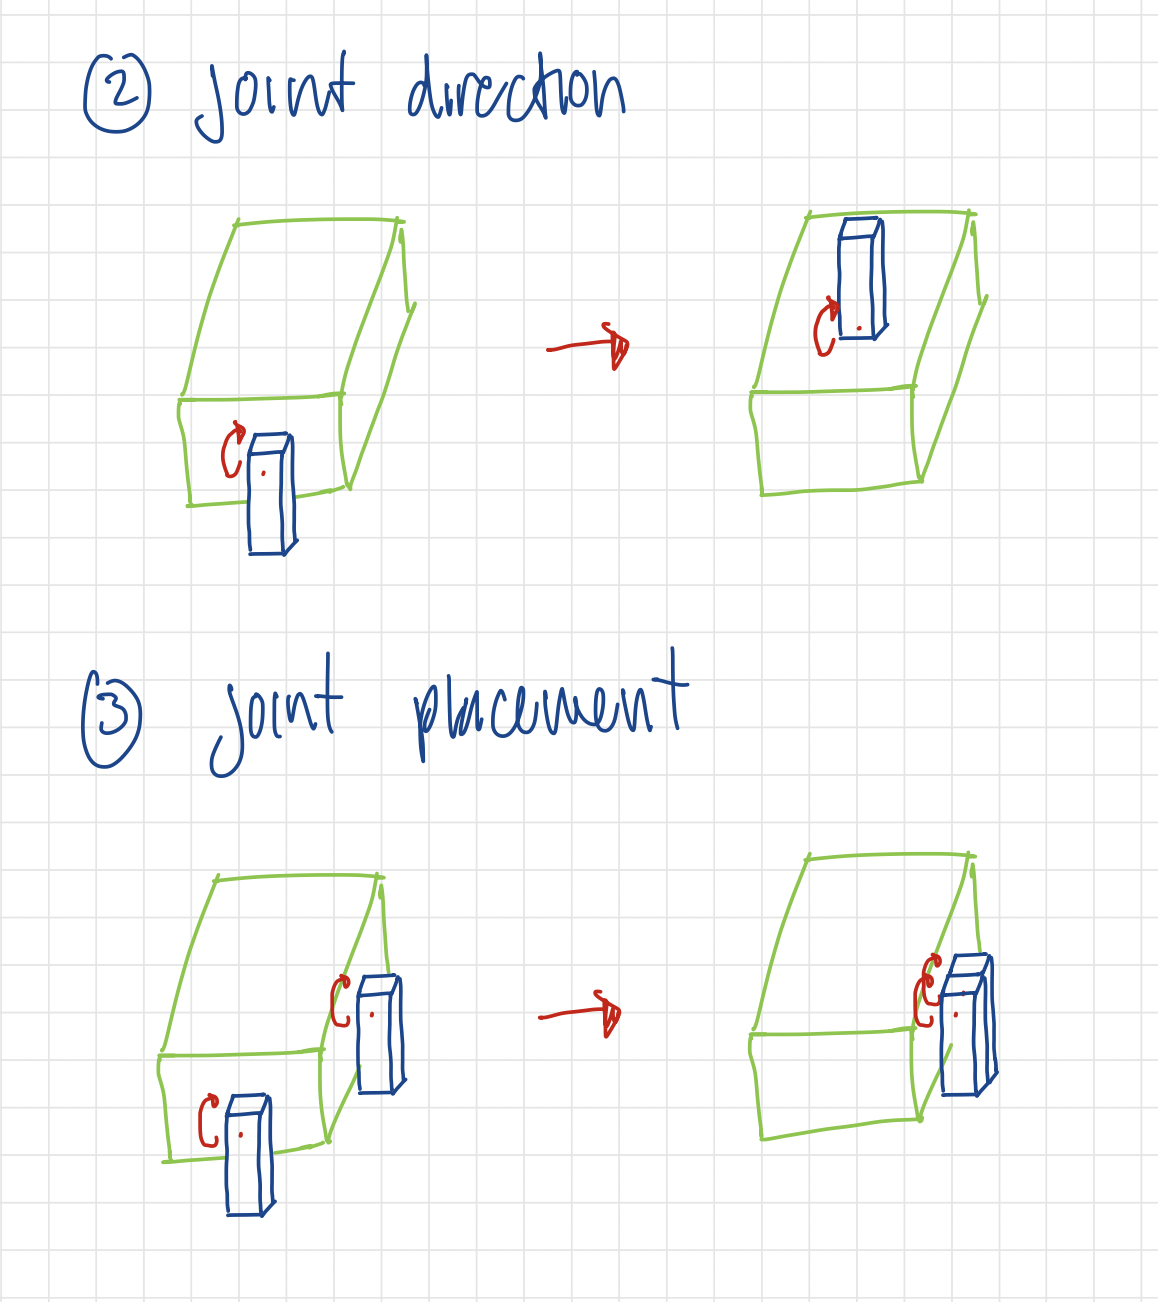 ② joint direction
③ joint placement